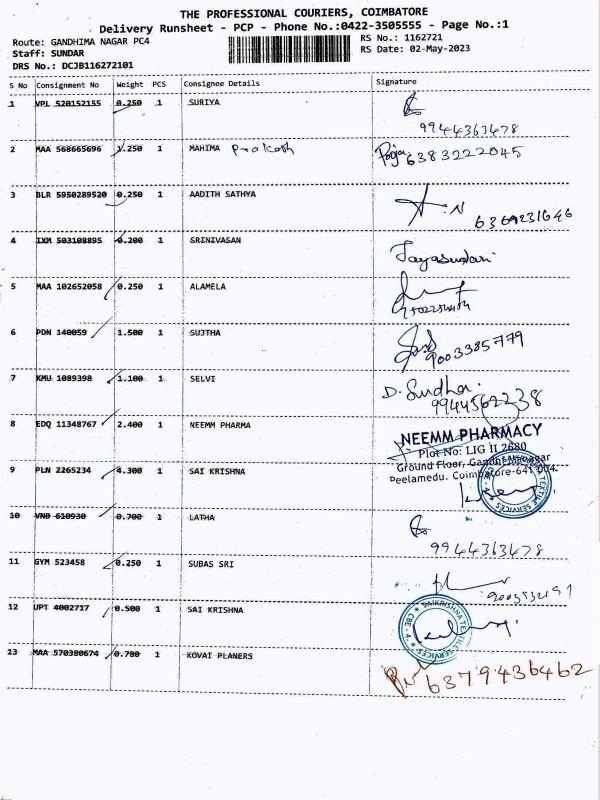 THE PROFESSIONAL COURIERS, COIMBATORE
Delivery Runsheet - PCP - Phone No.:0422-3505555 - Page No.:1
Route: GANDHIMA NAGAR PC4
RS No.: 1162721
Staff: SUNDAR
RS Date: 02-May-2023
DRS No.: DCJB116272101
S No Consignment No Weight PCS Consignee Details Signature
1 VPL 520152155 0.250 1 SURIYA
9944363478
2 MAA 568665696 1.250 1 MAHIMA Prakash Pooja 6383222045
3 BLR 5950289520 0.250 1 AADITH SATHYA A.N 6369231646
4 IXM 503108895 0.200 1 SRINIVASAN Jayasundari
5 MAA 102652058 0.250 1 ALAMELA
6 PDN 140059 1.500 1 SUJTHA 9003385779
7 KMU 1089398 1.100 1 SELVI D. Sudha.
9944562238
8 EDQ 11348767 2.400 1 NEEMM PHARMA NEEMM PHARMACY
Plot No: LIG II 2680
Ground Floor, Gandhi Managar
Peelamedu. Coimbatore-641 004.
9 PLN 2265234 4.300 1 SAI KRISHNA
SAIKRISHNA TEXTILE SERVICES CBE - 4.
10 VNB 610930 0.700 1 LATHA
9944363478
11 GYM 523458 0.250 1 SUBAS SRI
12 UPT 4002717 0.500 1 SAI KRISHNA SAIKRISHNA TEXTILE SERVICES CBE - 4.
13 MAA 570380674 0.780 1 KOVAI PLANERS
6379436462